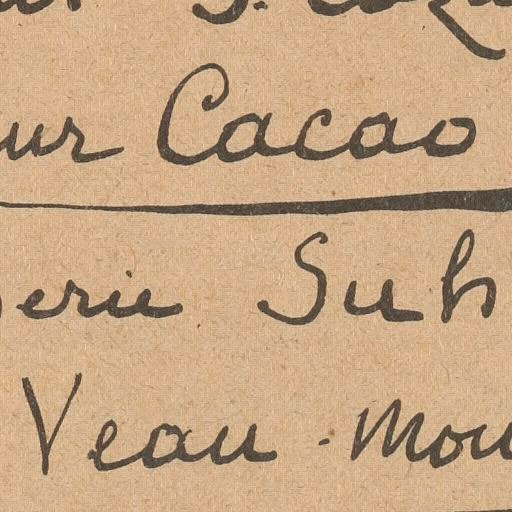 ur Cacao
erie Suh
Veau · Mou